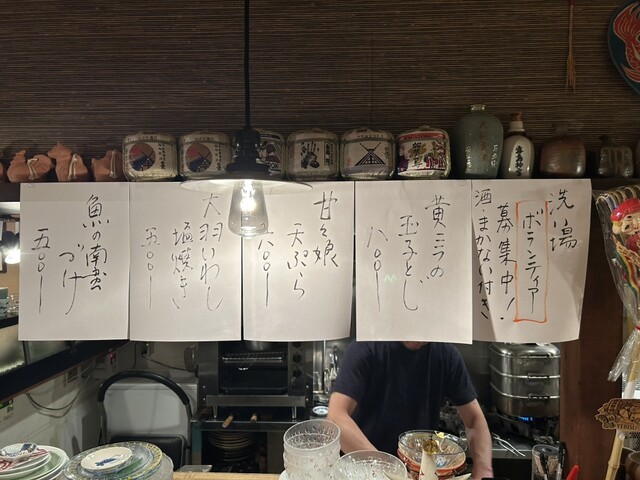 洗い場
ボランティア
募集中!
酒・まかない付き
黄ニラの
玉子とじ
八〇〇ー
甘々娘
天ぷら
八〇〇ー
大羽いわし
塩焼き
五〇〇ー
魚の南蛮
づけ
五〇〇ー